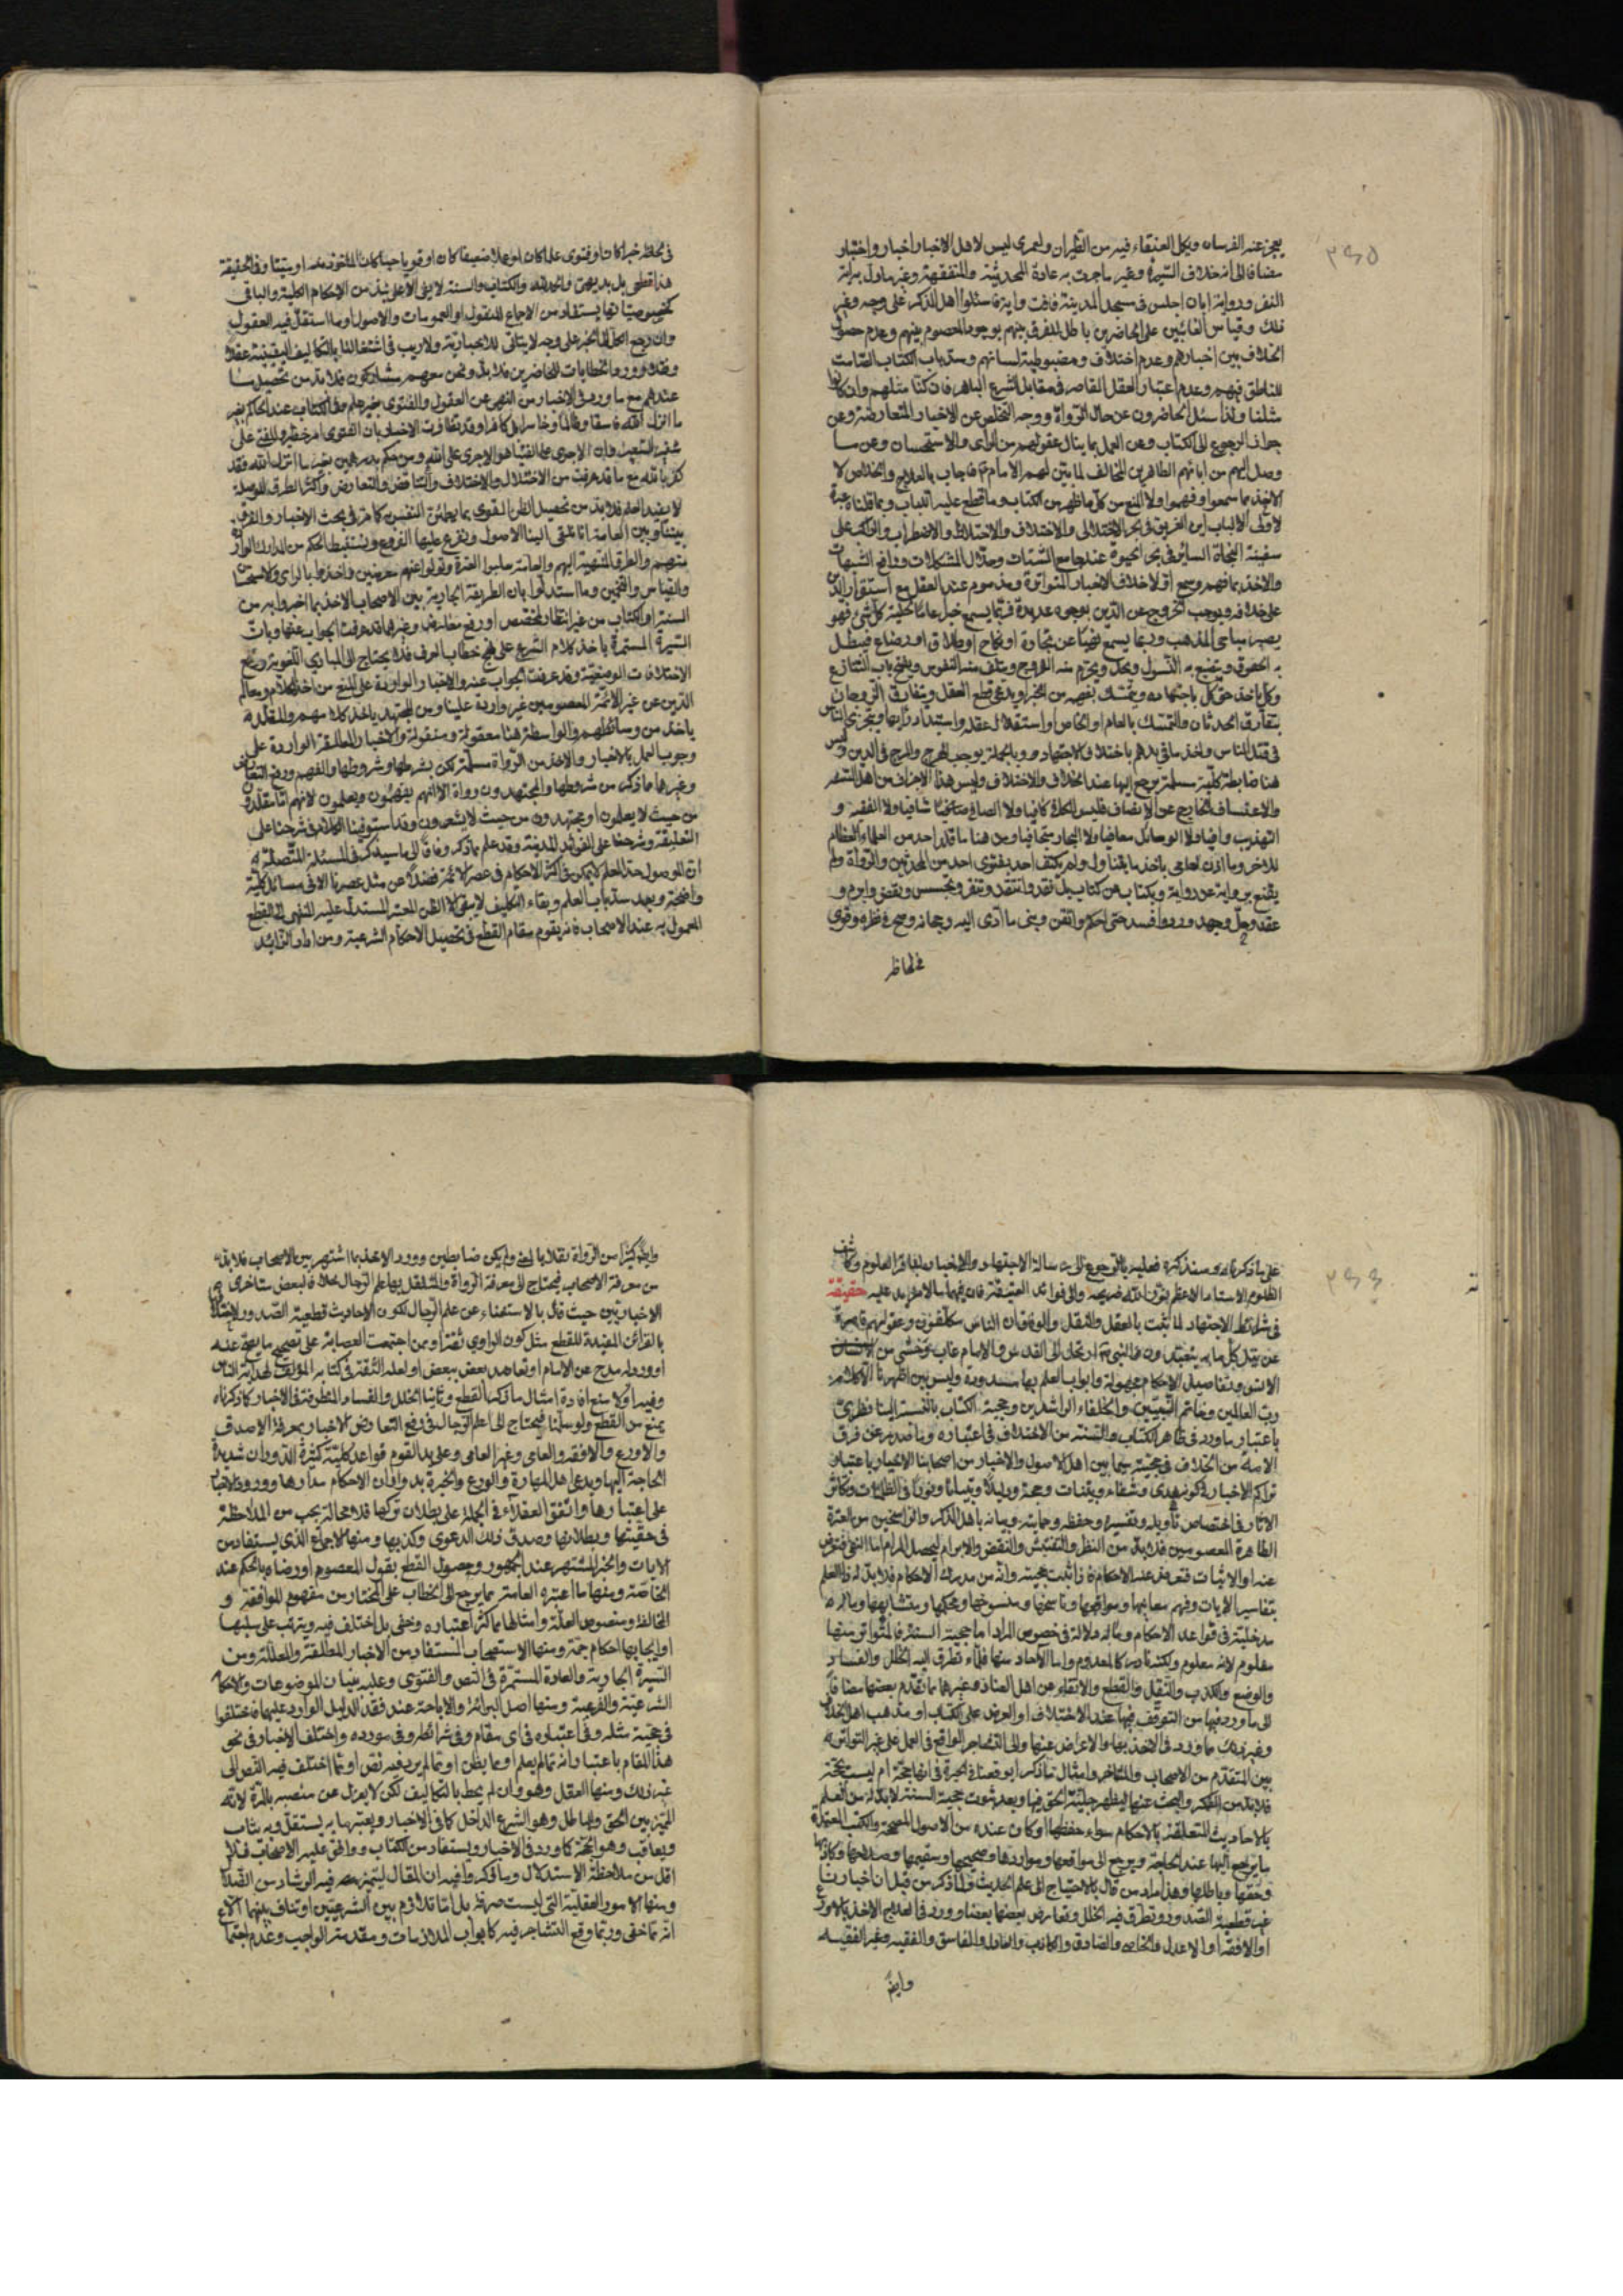 يعجز عنه الفرسان ويكل العنقاء فيه من الطيران ولعمري ليس لاهل الاخبار اخبار واختبار
مضافا الى انه خلاف السيرة وغير ما جرت به عادة المحدثية والمتفقهة وغير مأول براية
النفر ورواية ابان اجلس في مسجد المدينة فافت واية فاسئلوا اهل الذكر على وجه وغير
ذلك وقياس الغائبين على الحاضرين باطل للفرق بينهم بوجود المعصوم بينهم وعدم حصول
الخلاف بين اخبارهم وعدم اختلاف ومضبوطية لسانهم وسد باب الكتاب الصامت
للناطق فيهم وعدم اعتبار العقل القاصر في مقابل الشرع الباهر فان كنا مثلهم وان كانوا
مثلنا ولذا سئل الحاضرون عن حال الرواة ووجه التخلص عن الاخبار المتعارضة وعن
جواز الرجوع الى الكتاب وعن العمل بما ينال عقولهم من الراى والاستحسان وعن ما
وصل اليهم من ابائهم الطاهرين المخالف لما بين لهم الامام فاجاب بالعلاج والخلاص لا
الاخذ بما سمعوا وفهموا ولا المنع من كل ما ظهر من الكتاب وما قطع عليه الالباب وبما قلناه عبرة
لاولى الالباب اين الغريق في بحر الاختلال والاختلاف والاختلاط والاضطراب والراكب على
سفينة النجاة السائر في بحر الحيوة عند جامع الشتات وحلال المشكلات ودافع الشبهات
والاخذ بما فهم وسمع اولا خلاف الاخبار المتواترة ومذموم عند العقل مع استقرار الدين
على خلافه ويوجب الخروج عن الدين بوجوه عديدة فربما يسمع خبرا عاما لحلية كل شئ فهو
يصير مباحى المذهب وربما يسمع نصا عن تجارة او نكاح او طلاق او رضاع فيبطل
به الحقوق ويضيع به النسول ويحل ويحرم منه الفروج ويتلف منه النفوس ويفتح باب التنازع
وكل ياخذ حق كل باجتهاده ويتمسك بفهمه من الخبر ويدعى قطع العقل ويتفارق الزوجان
بتفارق الحدثان والتمسك بالعام او الخاص او استقلال عقله واستبداد رأيها ويتجرى الناس
في قتل الناس واخذ ما في يدهم باختلاف الاجتهاد وبالجملة يوجب الهرج والمرج في الدين وليس
هنا ضابطة كلية مسلمة يرجع اليها عند الخلاف والاختلاف وليس هذا الاجزاف من اهل التشهر
والاعتساف الخارج عن الانصاف فليس الكافى كافيا ولا الصافى صافيا شافيا ولا الفقيه و
التهذيب وافيا ولا الوسائل معافيا ولا البحار متجافيا ومن هنا ما قلد احد من العلماء العظام
للاخر وما اذن لعامي باخذ ما يتناول ولم يكتف احد بفتوى احد من المحدثين والرواة ولم
يقنع برواية عن رواية وبكتاب عن كتاب بل نقد وانتقد وتنقر وتجسس ونقض وابرم و
عقد وحل وجهد وورد وافسد حتى احكم واتقن وبنى ما ادى اليه رجحانه وصح في نظره وقوى
في لحاظه
في لحاظه خبرا كان او فتوى علما كان او عملا ضعيفا كان او قويا حيا كان المأخوذ منه او ميتا وفي الحقيقة
هذا قطعى بل بديهى فان بلغه والكتاب والسنة لا يفى الا على نبذ من الاحكام الكلية والباقى
كخصوصياتها يستفاد من الاجماع المنقول او العمومات والاصول او ما استقل فيه العقول
وان رجع الكل الى الخبر على وجه لا يتاتى للاخبارية ولا ريب في اشتغالنا بالتكاليف اليقينية عقلا
ونقلا وورود الخطابات للحاضرين فلا بد ونحن معهم مشاركون فلا بد من تحصيل ما
عندهم مع ما ورد في الاخبار من النهى عن العقول والفتوى بغير علم وفي الكتاب عند الحاكم بغير
ما انزل الله فاسقا وظالما وخاسرا بل كافرا وقد تظافرت الاخبار بان الفتوى امر خطير والمفتى على
شفير السعير وان الاجرى على الفتيا هو الاجرى على الله ومن حكم بدرهمين بغير ما انزل الله فقد
كفر بالله مع ما قد عرفت من الاختلال والاختلاف والتناقض والتعارض واكثر الطرق الموصلة
لا يفيد العلم فلا بد من تحصيل الظن القوى بما يطمئن النفس كما مر في بحث الاخبار والفرق
بيننا وبين العامة انا نتلقى الينا الاصول ونفرع عليها الفروع ونستنبط الحكم من المدارك الواردة
منهم والطرق المنتهية اليهم والعامة سلبوا العترة وتولوا عنهم معرضين واخذوا بالراى والاستحسان
والقياس والتخمين وما استدلوا بان الطريقة الجارية بين الاصحاب الاخذ بما اخبروا به من
السنة او الكتاب من غير انتظار لمخصص او رفع معارض وغيرها قد عرفت الجواب عنها وبان
السيرة المستمرة ياخذ كلام الشرع على نهج خطاب العرف فلا يحتاج الى المبادى اللغوية ورفع
الاختلافات الوضعية وقد عرفت الجواب عنه والاخبار الواردة على المنع من اخذ الكلام ومعالم
الدين عن غير الائمة المعصومين غير واردة علينا ومن المجتهد ياخذ كلامهم والمقلد له
ياخذ من وسائطهم والواسطة هنا معقولة ومنقولة والاخبار المطلقة الواردة على
وجوب العمل بالاخبار والاخذ من الرواة مسلمة لكن بشرطها وشروطها والفهم ورفع التعارض
وغيرها ما ذكر من شروطها والمجتهدون رواة الا انهم يفهمون ويعلمون لانهم اما مقلدة
من حيث لا يعلمون او مجتهدون من حيث لا يشعرون وقد استوفينا الكلام في شرحنا على
التعليقة وشرحنا على الفوائد المدنية وقد علم بما ذكر وفاقا الى ما سيذكر في المسئلة المتصلة به
ان الوصول حد العلم لا يمكن في اكثر الاحكام في عصر الائمة فضلا عن مثل عصرنا الا في مسائل كلية
واضحة وبعد سد باب العلم وبقاء التكليف لا يبقى الا الظن المعتبر المستدل عليه المنتهى الى القطع
المعمول به عند الاصحاب فانه يقوم مقام القطع في تحصيل الاحكام الشرعية ومن اراد الزائد
على ما ذكرناه وسنذكره فعليه بالرجوع الى رسالة الاجتهاد والاخبار لباقر العلوم وكاشف
الظلوم الاستاد الاعظم نور الله ضريحه والى فوائد العتيقة فان فيهما ما لا مزيد عليه حقيقة
في شرائط الاجتهاد لما ثبت بالعقل والنقل والوفاق ان الناس مكلفون وعقولهم قاصرة
عن نيل كل ما به يتعبدون والنبي ارتحل الى القدس والامام غاب وتخشى من الانسان
الانس وتفاصيل الاحكام مجهولة وابواب العلم بها مسدودة وليس بين اظهرنا الا كلام
رب العالمين وخاتم النبيين والخلفاء الراشدين وحجية الكتاب بالنسبة الينا نظرى
باعتبار ما ورد في ظاهر الكتاب والسنة من الاختلاف في اعتباره وما صدر عن فرق
الامة من الخلاف في حجيته سيما بين اهل الاصول والاخبار من اصحابنا الاخيار باعتبار
تراكم الاخبار في كونه هدى وشفاء وبينات وحجة ودليلا وتبيانا ونورا في الظلمات وتكاثر
الاثار في اختصاص تأويله وتفسيره وحفظه وحمايته وبيانه باهل الذكر والراسخين من العترة
الطاهرة المعصومين فلا بد من النظر والتفتيش والنقض والابرام ليحصل المرام اما النفى فتعرض
عنه او الاثبات فتعرض عليه الاحكام فاذا ثبت حجيته وانه من مدرك الاحكام فلا بد له من العلم
بتفاسير الايات وفهم معانيها ومواقعها وناسخها ومنسوخها ومحكمها ومتشابهها وما له
مدخلية في قواعد الاحكام وماله دلالة في خصوص المراد اما حجية السنة فالمتواتر منها
معلوم لانه معلوم ولكنه نادر كالمعدوم واما الاحاد منها فلما تطرق اليه الخلل والفساد
والوضع والكذب والنقل والقطع والاتقاء عن اهل العناد وغيرها مما تقدم بعضها مضافا
الى ما ورد فيها من التوقف فيها عند الاختلاف او العرض على الكتاب او مذهب اهل الخلاف
وغير ذلك مما ورد في الاخذ بها والاعراض عنها والى التشاجر الواقع في العمل على غير التواتر منه
بين المتقدم من الاصحاب والمتاخر وامثال ما ذكر اوقعتنا في الحيرة في انها حجة ام ليست بحجة
فلا بد من الفكر والبحث عنها ليظهر جلية الحق فيها وبعد ثبوت حجية السنة لا بد له من العلم
بالاحاديث المتعلقة بالاحكام سواء حفظها او كان عنده من الاصول المصححة والكتب المعتمدة
ما يرجع اليها عند الحاجة ويرجع الى مواقعها ومواردها وصحيحها وسقيمها وصدقها وكاذبها
وحقها وباطلها وهذا مراد من قال بالاحتياج الى علم الحديث ولما ذكر من قبل ان اخبارنا
غير قطعية الصدور وتطرق فيه الخلل وتعارض بعضها بعضا وورد في العلاج الاخذ بالاورع
او الافقه او الاعدل والخاص والصادق والكاذب والعادل والفاسق والفقيه وغير الفقيه
وايضا
وايضا كثيرا من الرواة نقلا بالمعنى ولم يكن ضابطين وورد الاخذ بما اشتهر بين الاصحاب فلا بد له
من معرفة الاصحاب فيحتاج الى معرفة الرواة والمتكفل بها علم الرجال خلافا لبعض متاخرى
الاخباريين حيث قال بالاستغناء عن علم الرجال لكون الاحاديث قطعية الصدور ولاختلا
بالقرائن المفيدة للقطع مثل كون الراوى ثقة او ممن اجتمعت العصابة على تصحيح ما يصح عنه
او ورد له مدح عن الامام او تعاضد بعض ببعض او لعله الثقة في كتابه المؤلف لهداية الناس
وفيه اولا منع افادة امثال ما ذكره القطع وثانيا الخلل والفساد المتطرق في الاخبار كما ذكرناه
يمنع من القطع ولو سلمنا فيحتاج الى علم الرجال في دفع التعارض للاخبار بمعرفة الاصدق
والاورع والافقه والعامى وغير العامى وعلى يد القوم قواعد كلية كثيرة الدوران شديدة
الحاجة اليها ويدعى اهل المهارة والورع والخبرة بدوران الاحكام مدارها وورود الاخبار
على اعتبارها واتفق العقلاء في الجملة على بطلان تركها فلا محالة يجب من الملاحظة
في حقيتها وبطلانها وصدق ذلك الدعوى وكذبها ومنها الاجماع الذى يستفاد من
الايات والخبر المشتهر عند الجمهور وحصول القطع بقول المعصوم او رضاه بالحكم عند
الخاصة ومنها ما اعتبره العامة مما يرجع الى الخطاب على المختار من مفهوم الموافقة و
المخالفة ومنصوص العلة وامثالها مما كثر اعتباره وخفى بل اختلف فيه ويترتب على سلبها
او ايجابها احكام جمة ومنها الاستصحاب المستفاد من الاخبار المطلقة والمعللة ومن
السيرة الجارية والعادة المستمرة في النص والفتوى وعليه بنيان الموضوعات والاحكام
الشرعية والفرعية ومنها اصل البرائة والاباحة عند فقد الدليل الوارد عليهما فاختلفوا
في حجية مثله وفي اعتباره في اى مقام وفي شرائطه وفي مورده واختلف الاخبار في نحو
هذا المقام باعتبار انه مما لم يعلم او مما يظن او مما لم يرد فيه نص او مما اختلف فيه النص الى
غير ذلك ومنها العقل وهو وان لم يحط بالتكاليف لكن لا يعزل عن منصبه بالمرة لانه
المميز بين الحق والباطل وهو الشرع الداخل كما في الاخبار ويعتبر ما به يستقل وبه يثاب
ويعاقب وهو الحجة كما ورد في الاخبار ويستفاد من الكتاب ووافق عليه الاصحاب فلا
اقل من ملاحظة الاستدلال وما ذكر وافيه ان المقال ليتميز فيه الرشاد من الضلال
ومنها الامور العقلية التي ليست صرفة بل اما تلازم بين الشرعيين او تناف بينهما الا
انه مما خفى وربما وقع التشاجر فيه كابواب الملازمات ومقدمة الواجب وعدم اجتماع